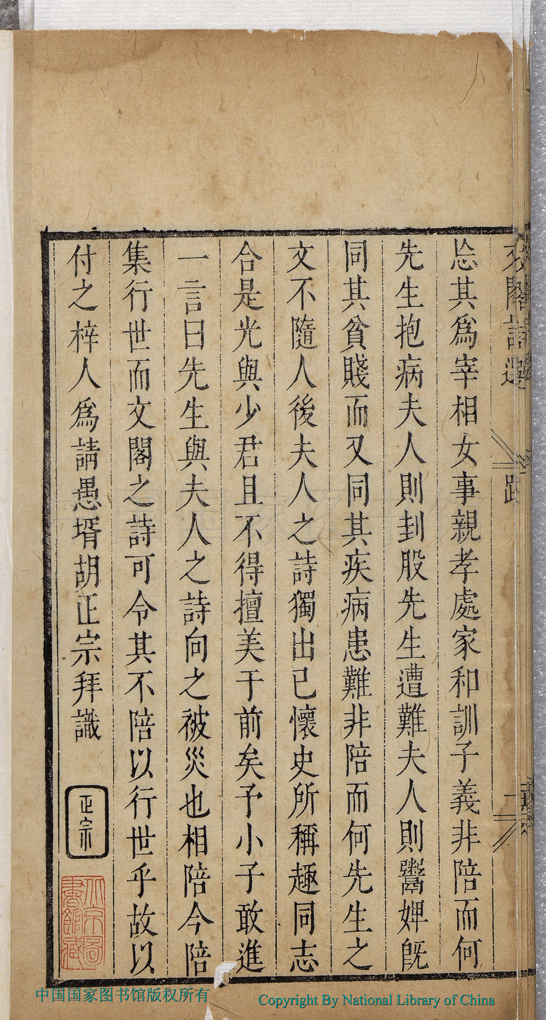 文閣詩選 跋
忩其爲宰相女事親孝處家和訓子義非陪而何
先生抱病夫人則刲股先生遭難夫人則鬻婢旣
同其貧賤而又同其疾病患難非陪而何先生之
文不隨人後夫人之詩獨出己懷史所稱趣同志
合是光與少君且不得擅美于前矣予小子敢進
一言曰先生與夫人之詩向之被災也相陪今陪
集行世而文閣之詩可令其不陪以行世乎故以
付之梓人爲請愚壻胡正宗拜識
正宗
中国国家图书馆版权所有
Copyright By National Library of China